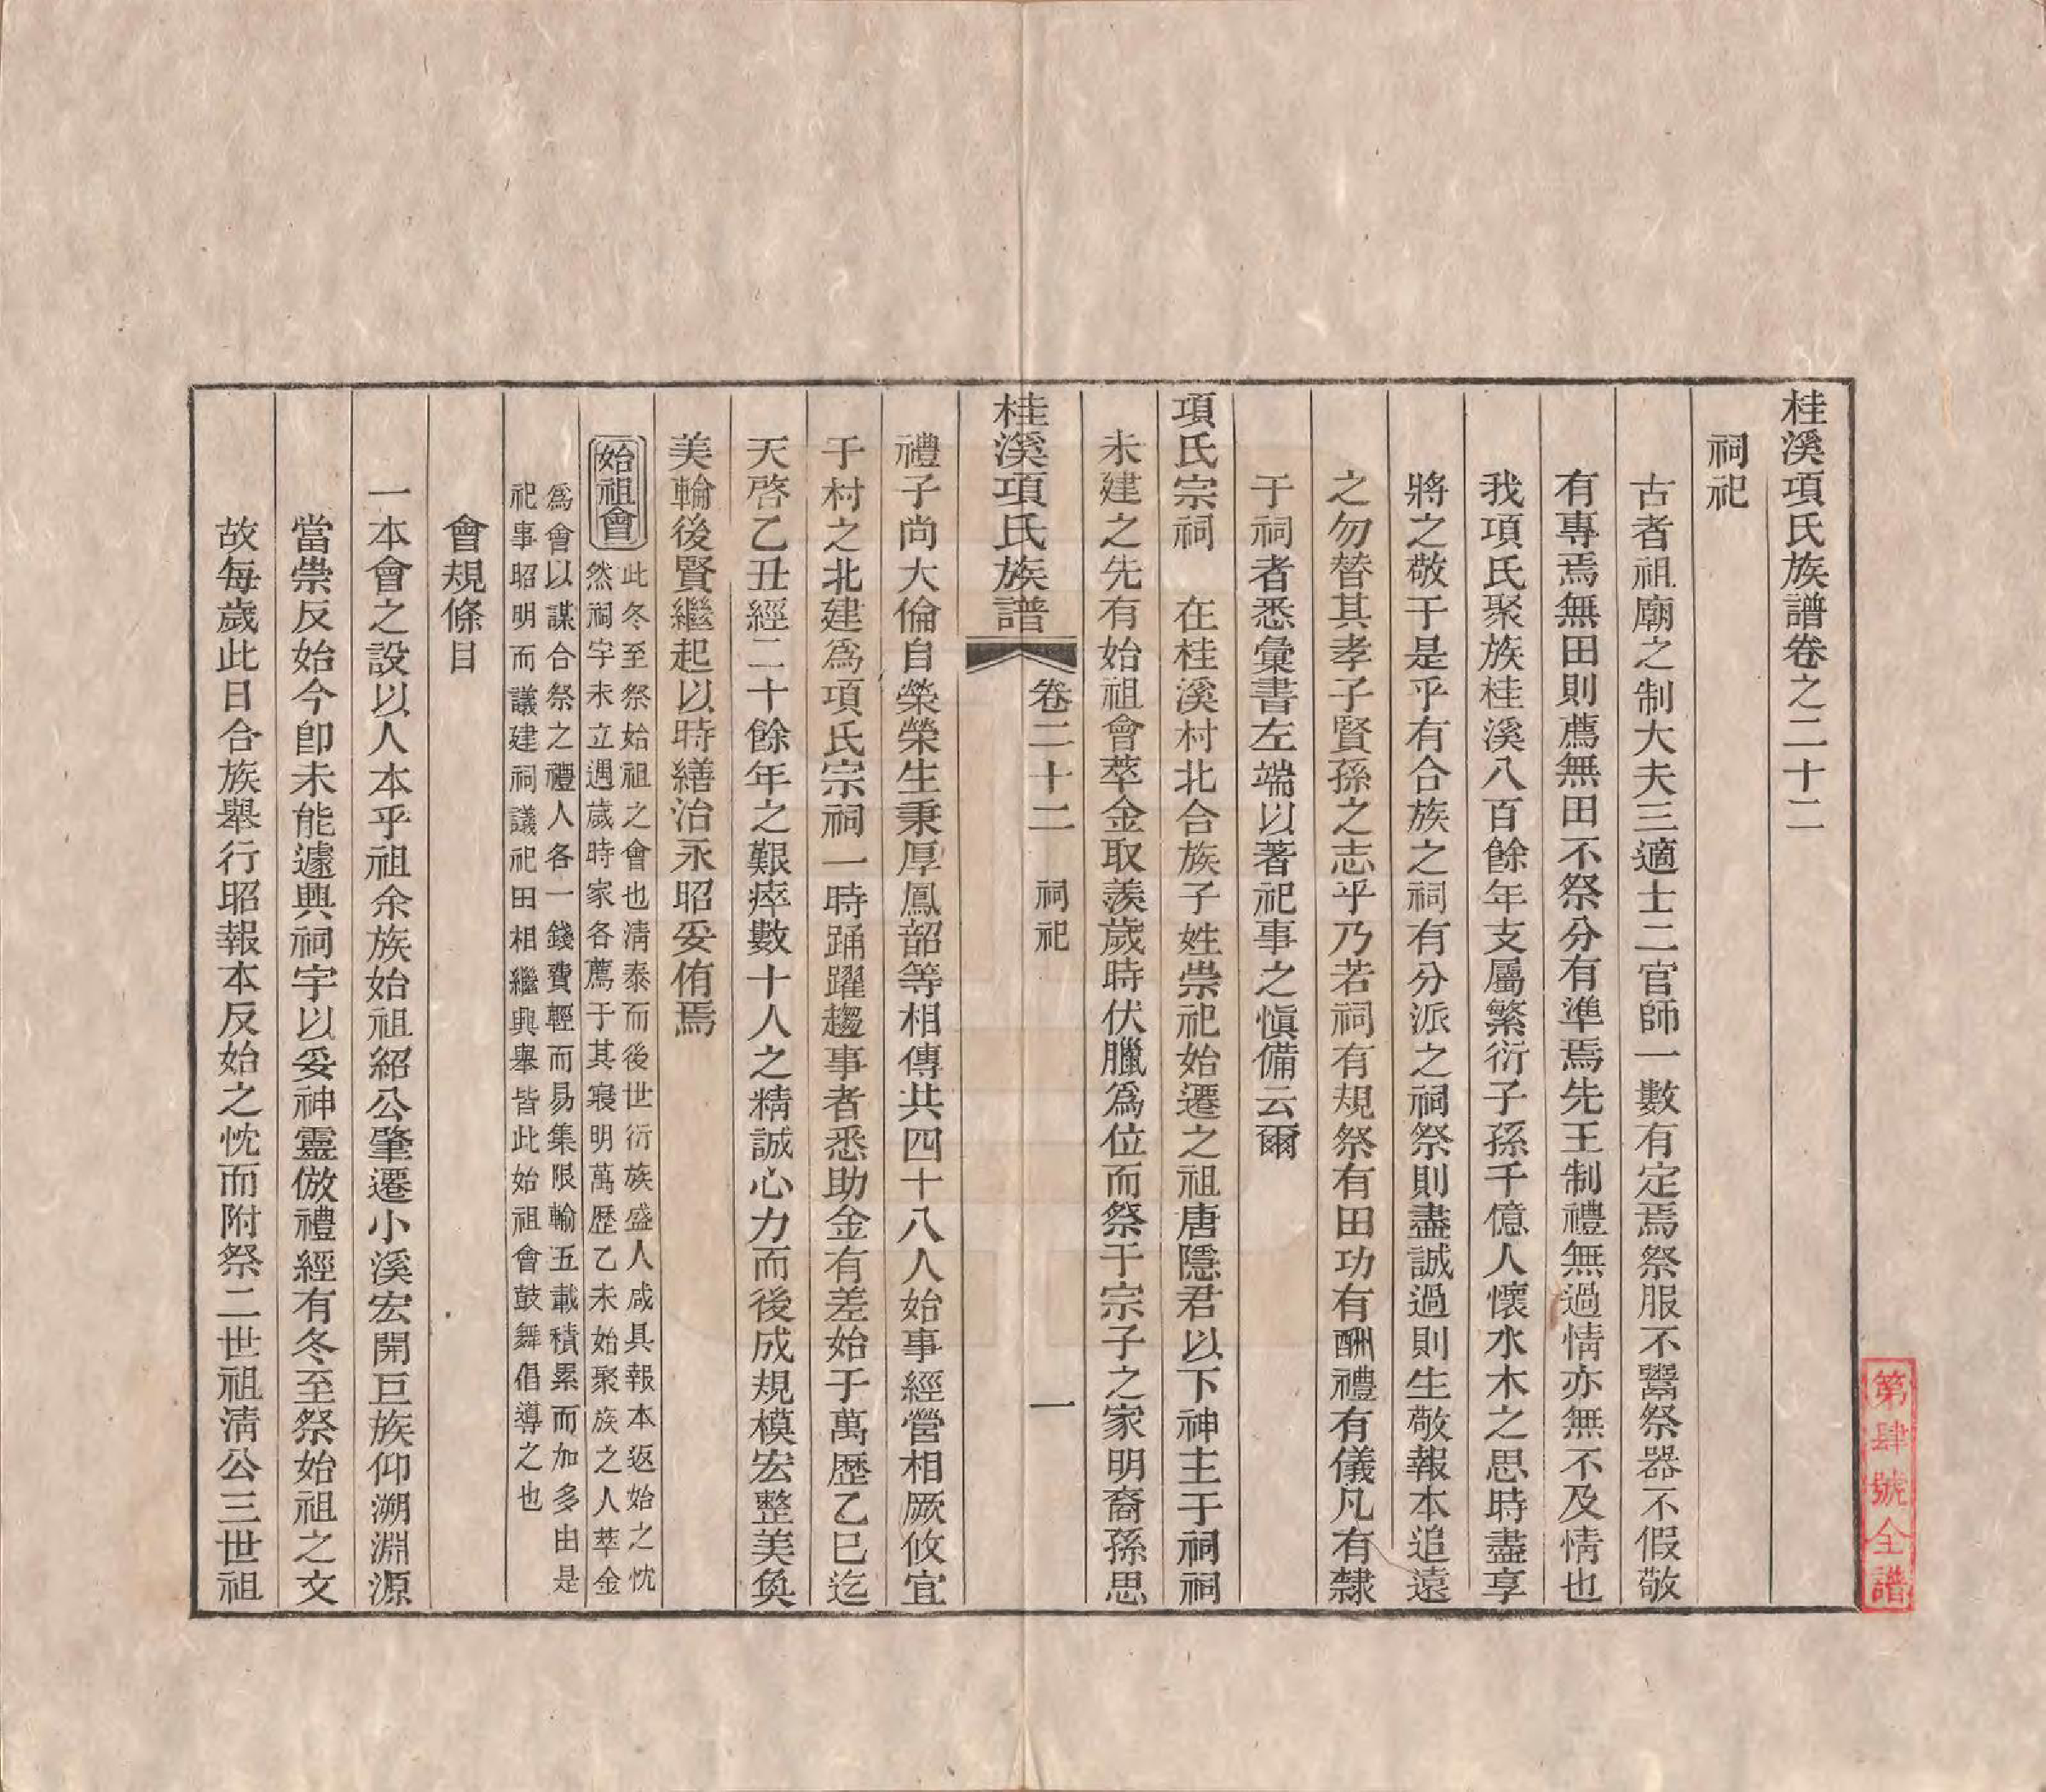 桂溪項氏族譜卷之二十二
祠祀
古者祖廟之制大夫三適士二官師一數有定焉祭服不鬻祭器不假敬
有專焉無田則薦無田不祭分有準焉先王制禮無過情亦無不及情也
我項氏聚族桂溪八百餘年支屬繁衍子孫千億人懷水木之思時盡享
將之敬于是乎有合族之祠有分派之祠祭則盡誠過則生敬報本追遠
之勿替其孝子賢孫之志乎乃若祠有規祭有田功有酬禮有儀凡有隸
于祠者悉彙書左端以著祀事之慎備云爾
項氏宗祠　在桂溪村北合族子姓崇祀始遷之祖唐隱君以下神主于祠祠
未建之先有始祖會萃金取羨歲時伏臘爲位而祭于宗子之家明裔孫思
禮子尚大倫自榮榮生秉厚鳳韶等相傳共四十八人始事經營相厥攸宜
于村之北建爲項氏宗祠一時踊躍趨事者悉助金有差始于萬歷乙巳迄
天啓乙丑經二十餘年之艱瘁數十人之精誠心力而後成規模宏整美奐
美輪後賢繼起以時繕治永昭妥侑焉
始祖會
此冬至祭始祖之會也淸泰而後世衍族盛人咸具報本返始之忱
然祠宇未立遇歲時家各薦于其寢明萬歷乙未始聚族之人萃金
爲會以謀合祭之禮人各一錢費輕而易集限輸五載積累而加多由是
祀事昭明而議建祠議祀田相繼興舉皆此始祖會鼓舞倡導之也
會規條目
一本會之設以人本乎祖余族始祖紹公肇遷小溪宏開巨族仰溯淵源
當崇反始今卽未能遽興祠宇以妥神靈倣禮經有冬至祭始祖之文
故每歲此日合族舉行昭報本反始之忱而附祭二世祖淸公三世祖
桂溪項氏族譜
卷二十二　祠祀
一
第肆號全譜